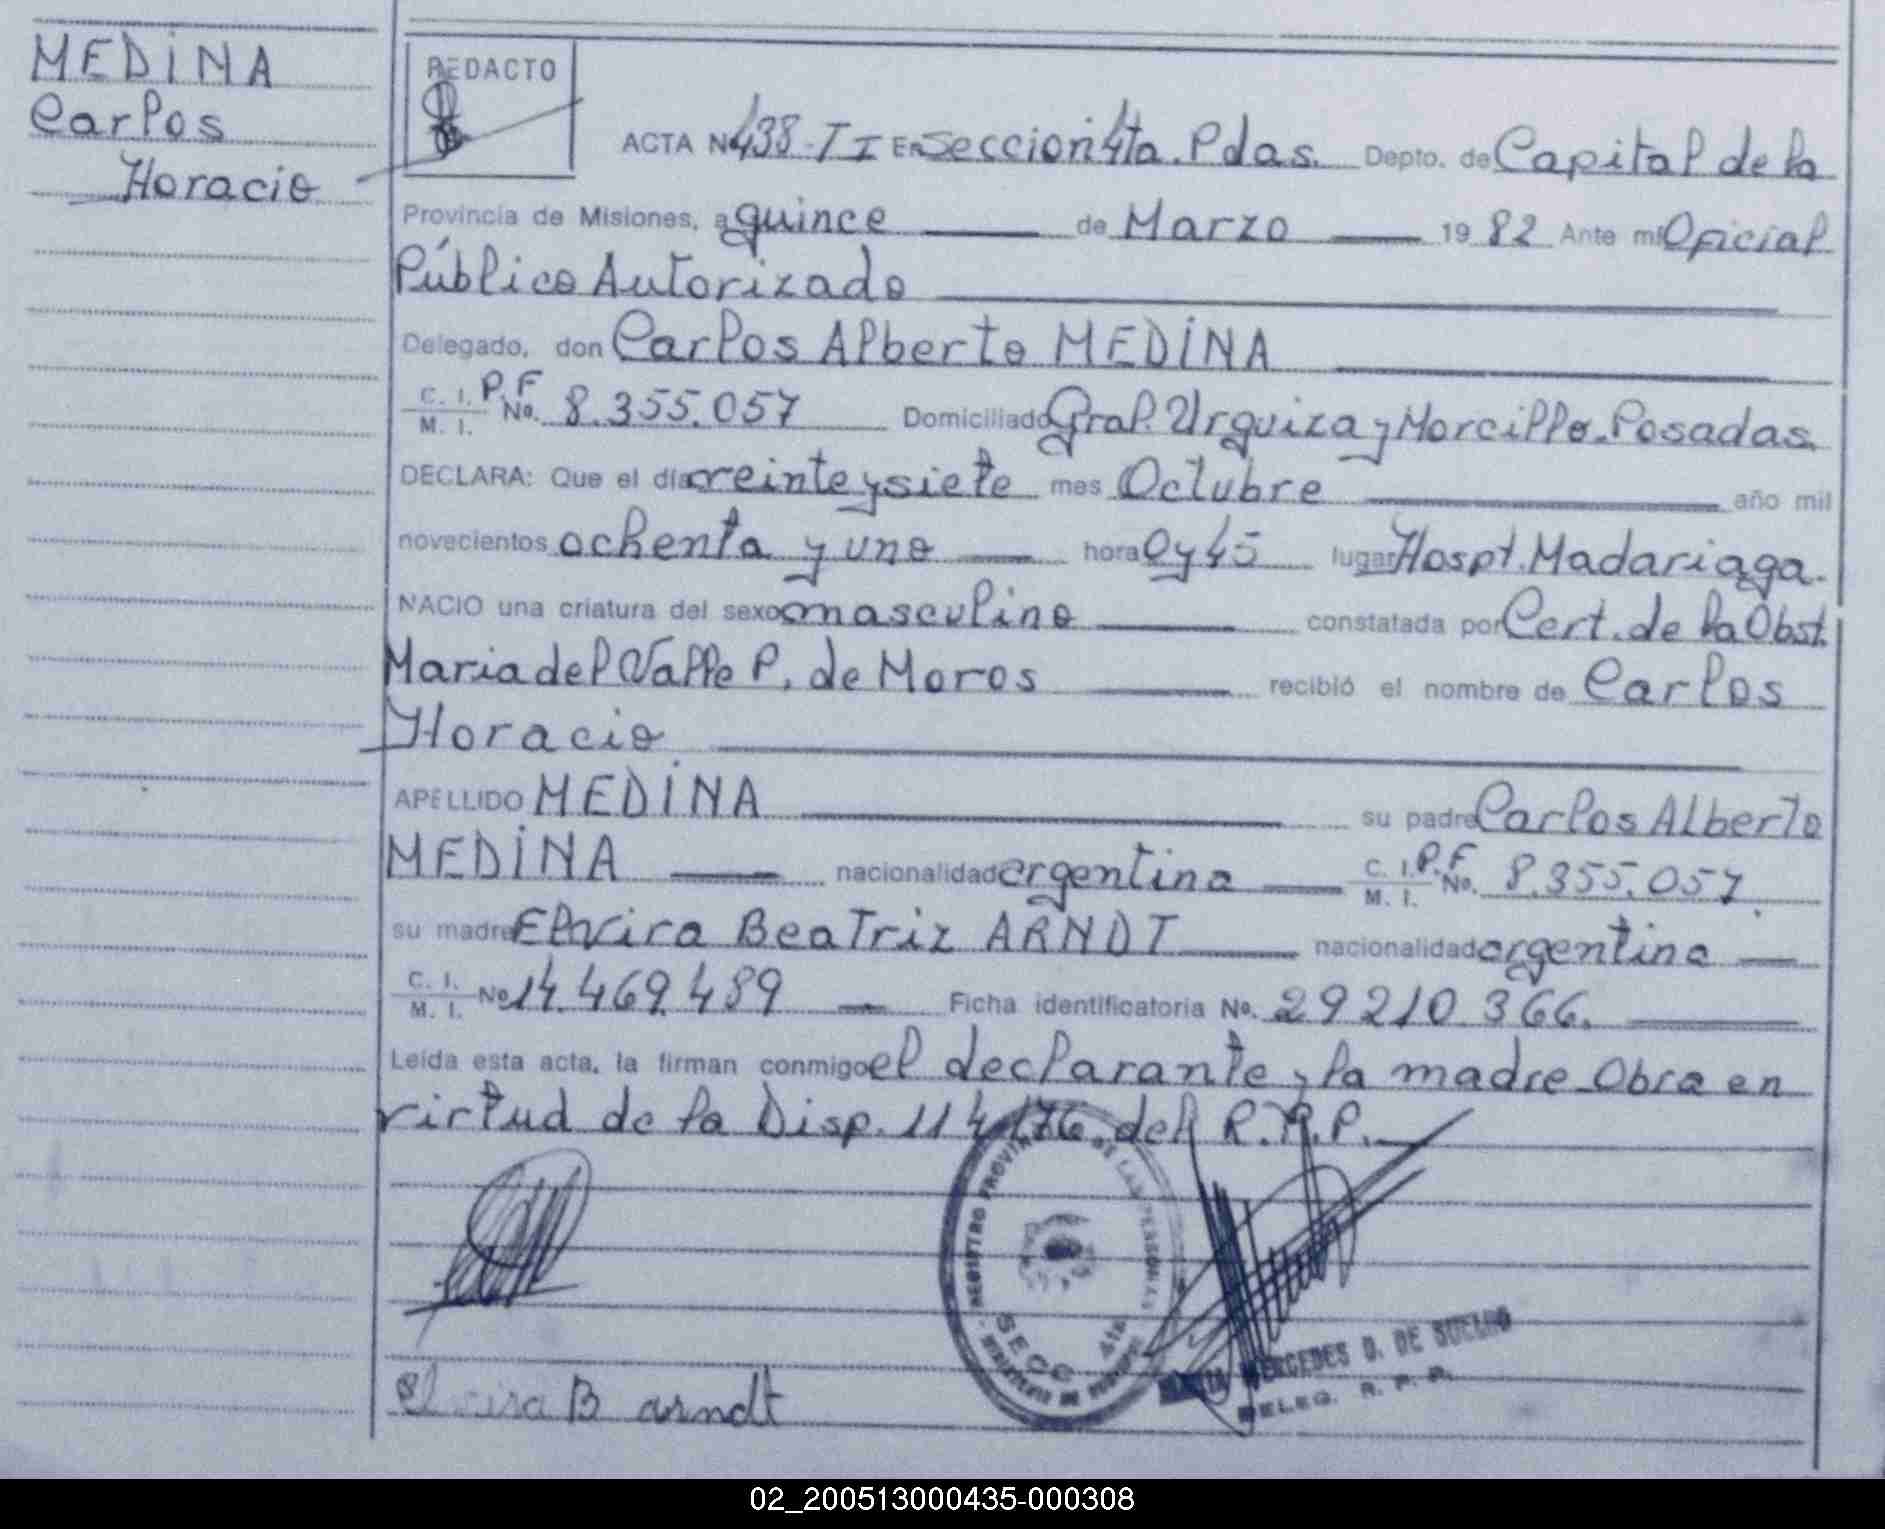 MEDINA
Carlos
Horacio
REDACTO
ACTA Nº 438-TI En Seccion 4ta. Pdas. Depto. de Capital de la
Provincia de Misiones, a quince de Marzo 19 82 Ante mi Oficial
Público Autorizado
Delegado, don Carlos Alberto MEDINA
C. I. P.F
M. I. No. 8.355.057 Domiciliado Gral. Urquiza y Morcillo. Posadas.
DECLARA: Que el día veinte y siete mes Octubre año mil
novecientos ochenta y uno hora 0 y 45 lugar Hospt. Madariaga.
NACIO una criatura del sexo masculino constatada por Cert. de la Obst.
Maria del Valle P. de Moros recibió el nombre de Carlos
Horacio
APELLIDO MEDINA su padre Carlos Alberto
MEDINA nacionalidad argentina C. I. P.F M. I. No. 8.355.057.
su madre Elvira Beatriz ARNDT nacionalidad argentina
C. I. M. I. No 14.469.489 Ficha identificatoria No. 29210.366.
Leída esta acta, la firman conmigo el declarante y la madre Obra en
virtud de la Disp. 114/76 del R.P.P.
REGISTRO PROVINCIAL DE LAS PERSONAS
SECC 4ta
MERCEDES D. DE
DELEG. R. P. P.
Elvira B arndt
02_200513000435-000308